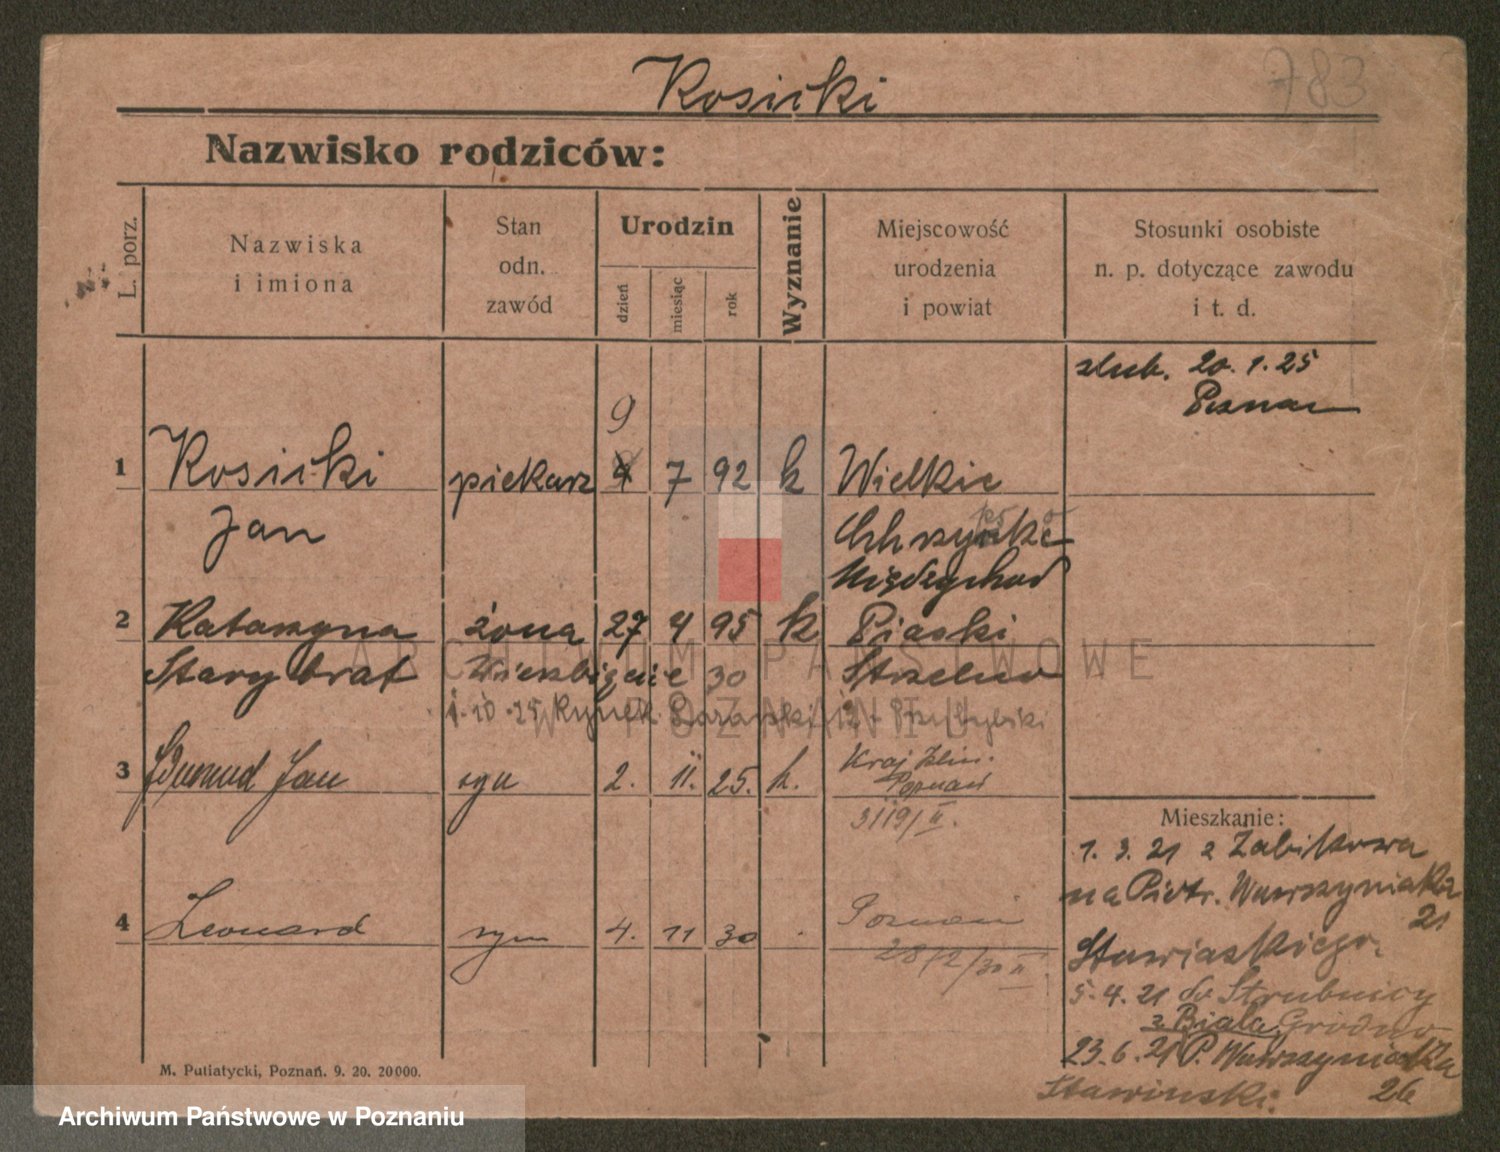 Rosicki
783
Nazwisko rodziców:
L. porz.
Nazwiska i imiona
Stan odn. zawód
Urodzin
dzień
miesiąc
rok
Wyznanie
Miejscowość urodzenia i powiat
Stosunki osobiste n. p. dotyczące zawodu i t. d.
ślub. 20. 1. 25
Poznań
9
1 Rosicki piekarz 7 92 k Wielkie
Jan
Międzychod
2 Katarzyna żona 27 4 95 k Piaski
Stary brat 30 Strzelno
1. 10. 25 Rynek
3 Edmund Jan syn 2. 11. 25. k.
Poznań
Mieszkanie:
1. 3. 21 z Żabikowa
na Piotr. Wawrzyniaka
21
4 Leonard syn 4. 11 30 Poznań
28/2/30 II
5. 4. 21 do
z Biała Grodno
23. 6. 21 P. Wawrzyniaka
26
Stawinski.
M. Putiatycki, Poznań. 9. 20. 20000.
ARCHIWUM PAŃSTWOWE
W POZNANIU
Archiwum Państwowe w Poznaniu